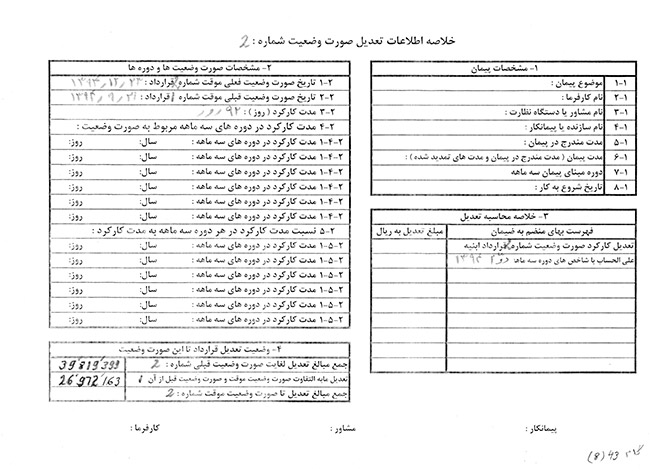 خلاصه اطلاعات تعدیل صورت وضعیت شماره : 2
۱- مشخصات پیمان
۱-۱ موضوع پیمان :
۲-۱ نام کارفرما :
۳-۱ نام مشاور یا دستگاه نظارت :
۴-۱ نام سازنده یا پیمانکار :
۵-۱ مدت مندرج در پیمان :
۶-۱ مدت پیمان ( مدت مندرج در پیمان و مدت های تمدید شده ) :
۷-۱ دوره مبنای پیمان سه ماهه
۸-۱ تاریخ شروع به کار :
۲- مشخصات صورت وضعیت ها و دوره ها
۱-۲ تاریخ صورت وضعیت فعلی موقت شماره قرارداد : ۱۳۹۳,۱۲,۲۳
۲-۲ تاریخ صورت وضعیت قبلی موقت شماره ۱ قرارداد : ۱۳۹۳,۹,۲۱
۳-۲ مدت کارکرد ( روز ) : ۹۲ روز
۴-۲ مدت کارکرد در دوره های سه ماهه مربوط به صورت وضعیت :
۱-۴-۲ مدت کارکرد در دوره های سه ماهه : سال: روز:
۱-۴-۲ مدت کارکرد در دوره های سه ماهه : سال: روز:
۱-۴-۲ مدت کارکرد در دوره های سه ماهه : سال: روز:
۱-۴-۲ مدت کارکرد در دوره های سه ماهه : سال: روز:
۱-۴-۲ مدت کارکرد در دوره های سه ماهه : سال: روز:
۱-۴-۲ مدت کارکرد در دوره های سه ماهه : سال: روز:
۵-۲ نسبت مدت کارکرد در هر دوره سه ماهه به مدت کارکرد :
۱-۵-۲ مدت کارکرد در دوره های سه ماهه : سال: روز:
۱-۵-۲ مدت کارکرد در دوره های سه ماهه : سال: روز:
۱-۵-۲ مدت کارکرد در دوره های سه ماهه : سال: روز:
۱-۵-۲ مدت کارکرد در دوره های سه ماهه : سال: روز:
۱-۵-۲ مدت کارکرد در دوره های سه ماهه : سال: روز:
۱-۵-۲ مدت کارکرد در دوره های سه ماهه : سال: روز:
۳- خلاصه محاسبه تعدیل
فهرست بهای منضم به ضیمان مبلغ تعدیل به ریال
تعدیل کارکرد صورت وضعیت شماره قرارداد ابنیه
علی الحساب با شاخص های دوره سه ماهه
۴- وضعیت تعدیل قرارداد تا این صورت وضعیت
جمع مبالغ تعدیل لغایت صورت وضعیت قبلی شماره : 2 39'819'399
تعدیل مابه التفاوت صورت وضعیت موقت و صورت وضعیت قبل از آن 1 26'972'163
جمع مبالغ تعدیل تا صورت وضعیت موقت شماره : 2
پیمانکار : مشاور : کارفرما :
43 (8)